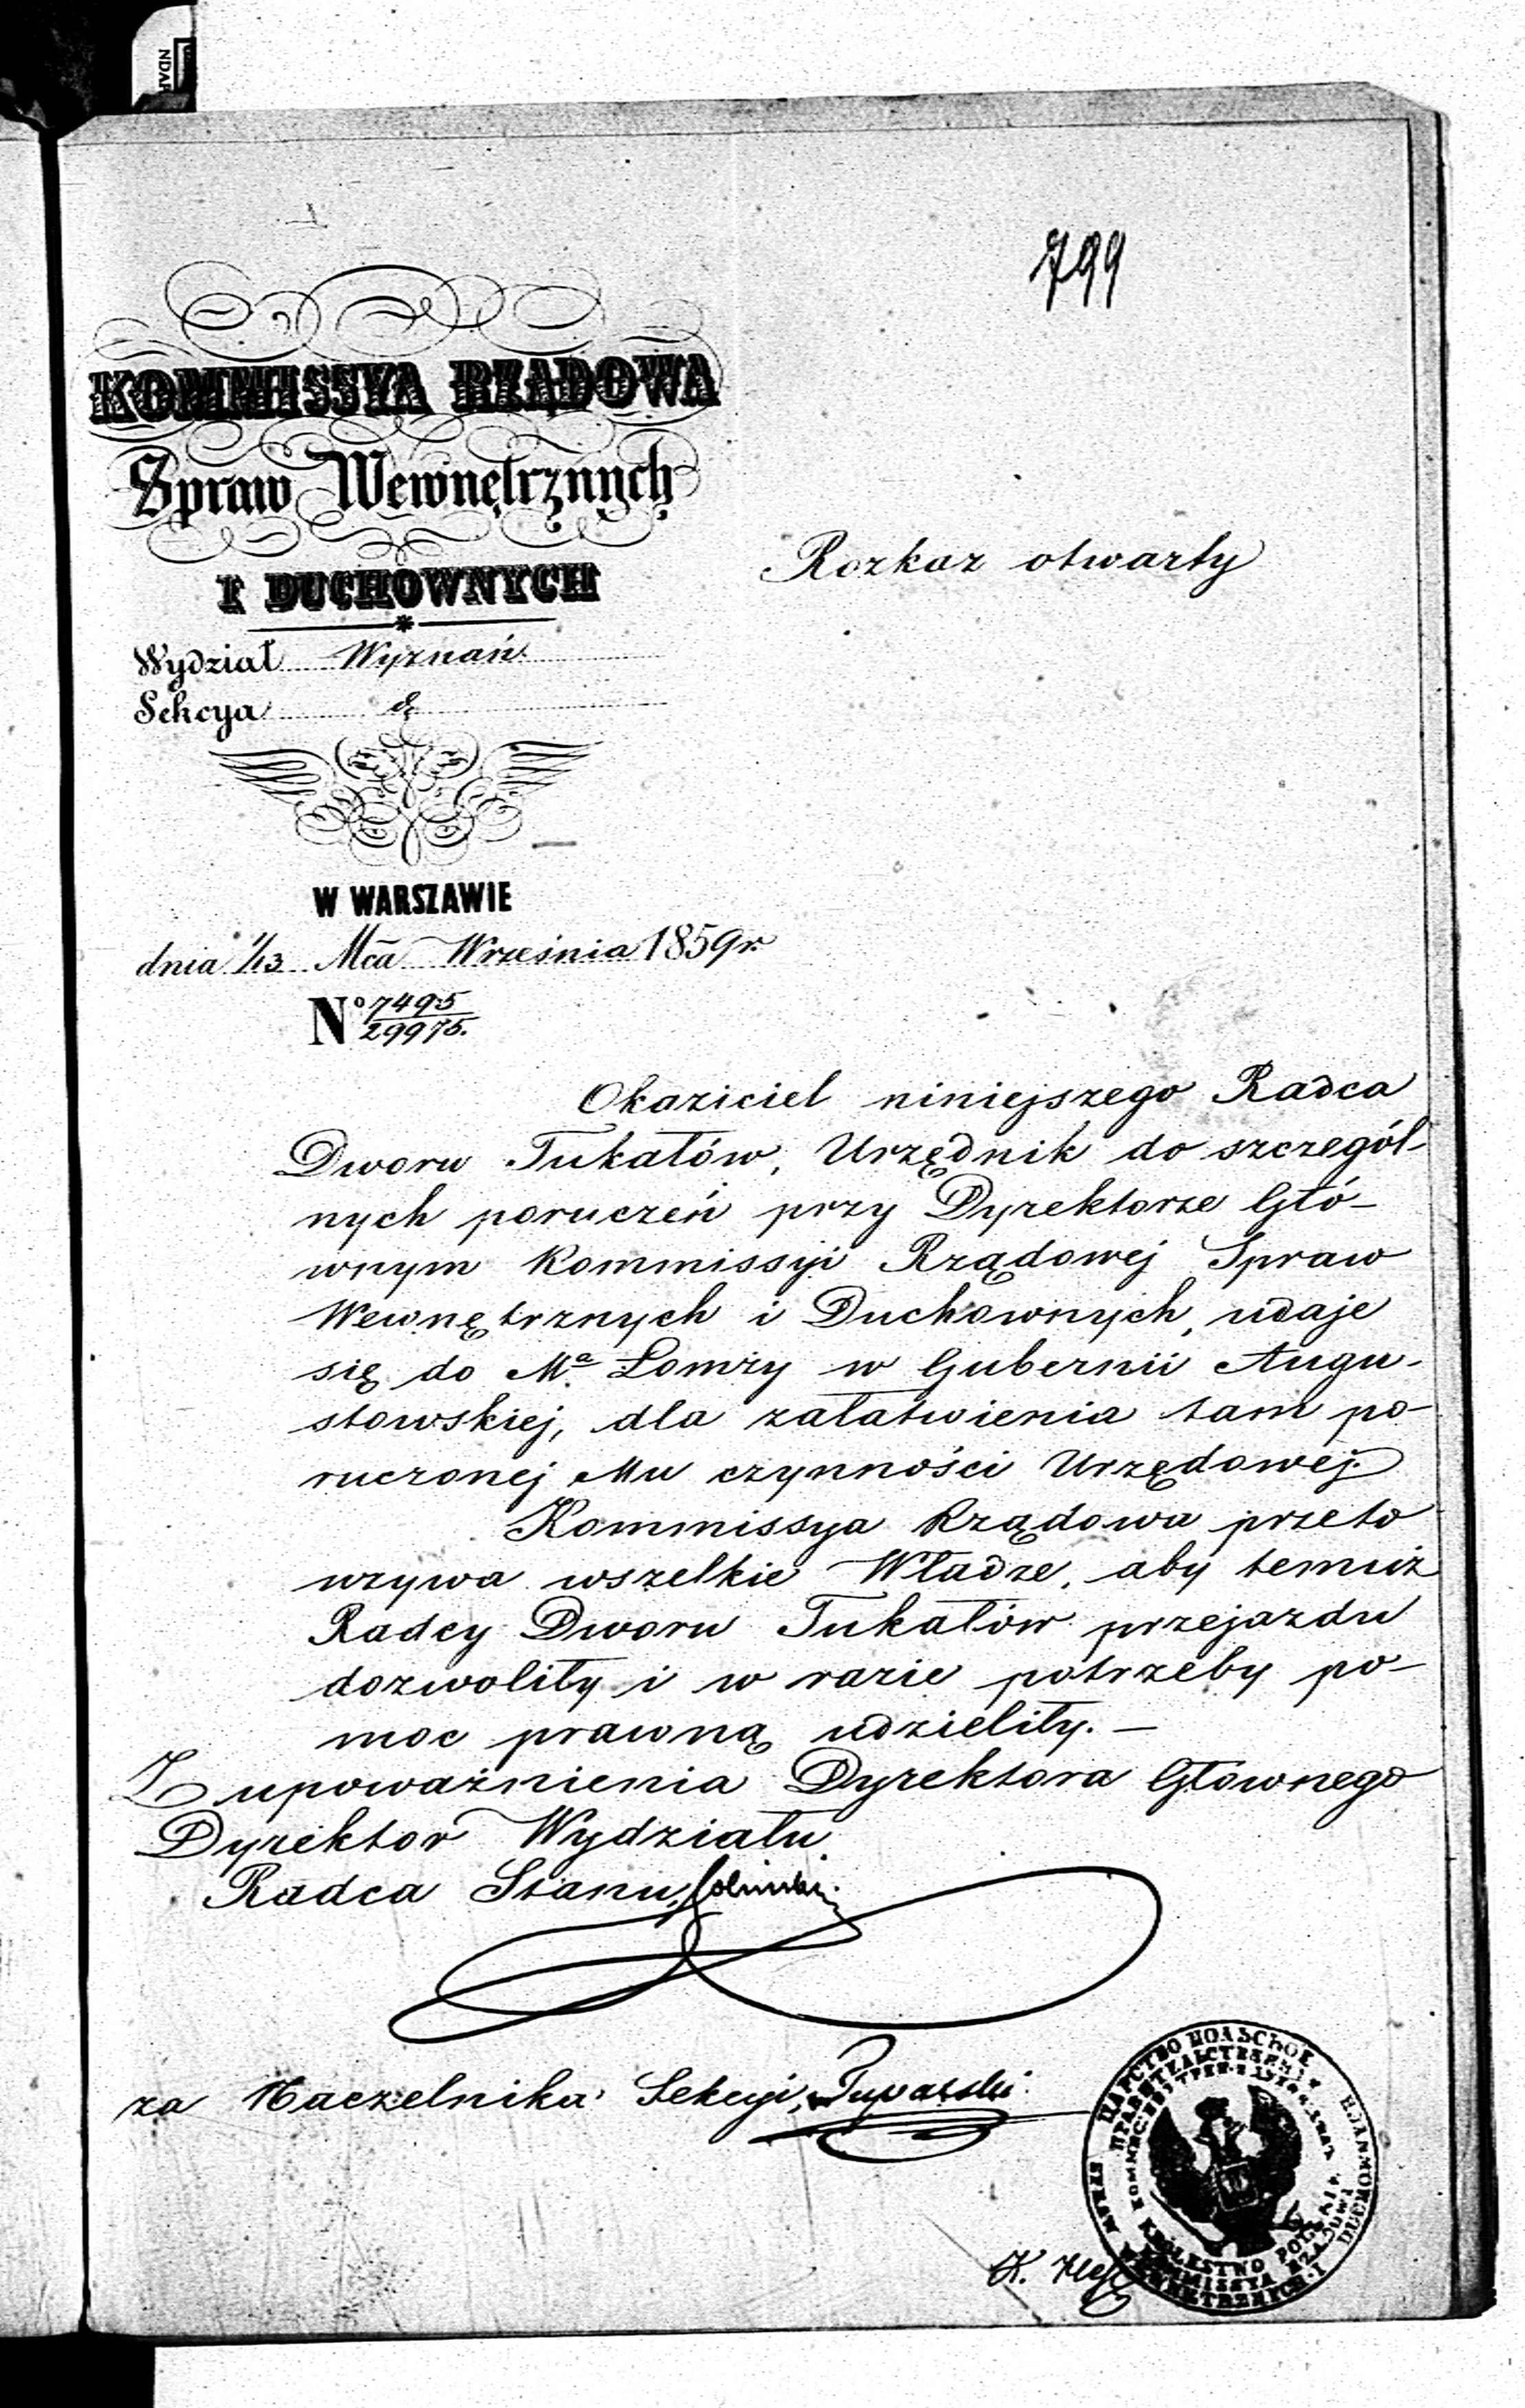 799
KOMMISSYA RZĄDOWA
Spraw Wewnętrznych
I DUCHOWNYCH
Rozkaz otwarty
Wydział Wyznań
Sekcya
W WARSZAWIE
dnia 1/13 Mca Września 1859 r.
No 7495/29975.
Okaziciel niniejszego Radca
Dworu Tukałów, Urzędnik do szczegól-
nych poruczeń przy Dyrektorze Głó-
wnym Kommissyi Rządowej Spraw
Wewnętrznych i Duchownych, udaje
się do Ma Łomży w Gubernii Augu-
stowskiej, dla załatwienia tam po-
ruczonej Mu czynności Urzędowej.
Kommissya Rządowa przeto
wzywa wszelkie Władze, aby temuż
Radcy Dworu Tukałów przejazdu
dozwoliły i w razie potrzeby po-
moc prawną udzieliły. —
Z upoważnienia Dyrektora Głównego
Dyrektor Wydziału
Radca Stanu,
za Naczelnika Sekcyi,
ЦАРСТВО ПОЛЬСКОЕ
KRÓLESTWO POLSKIE
KOMMISSYA RZĄDOWA
SPRAW WEWNĘTRZNYCH I DUCHOWNYCH
K.